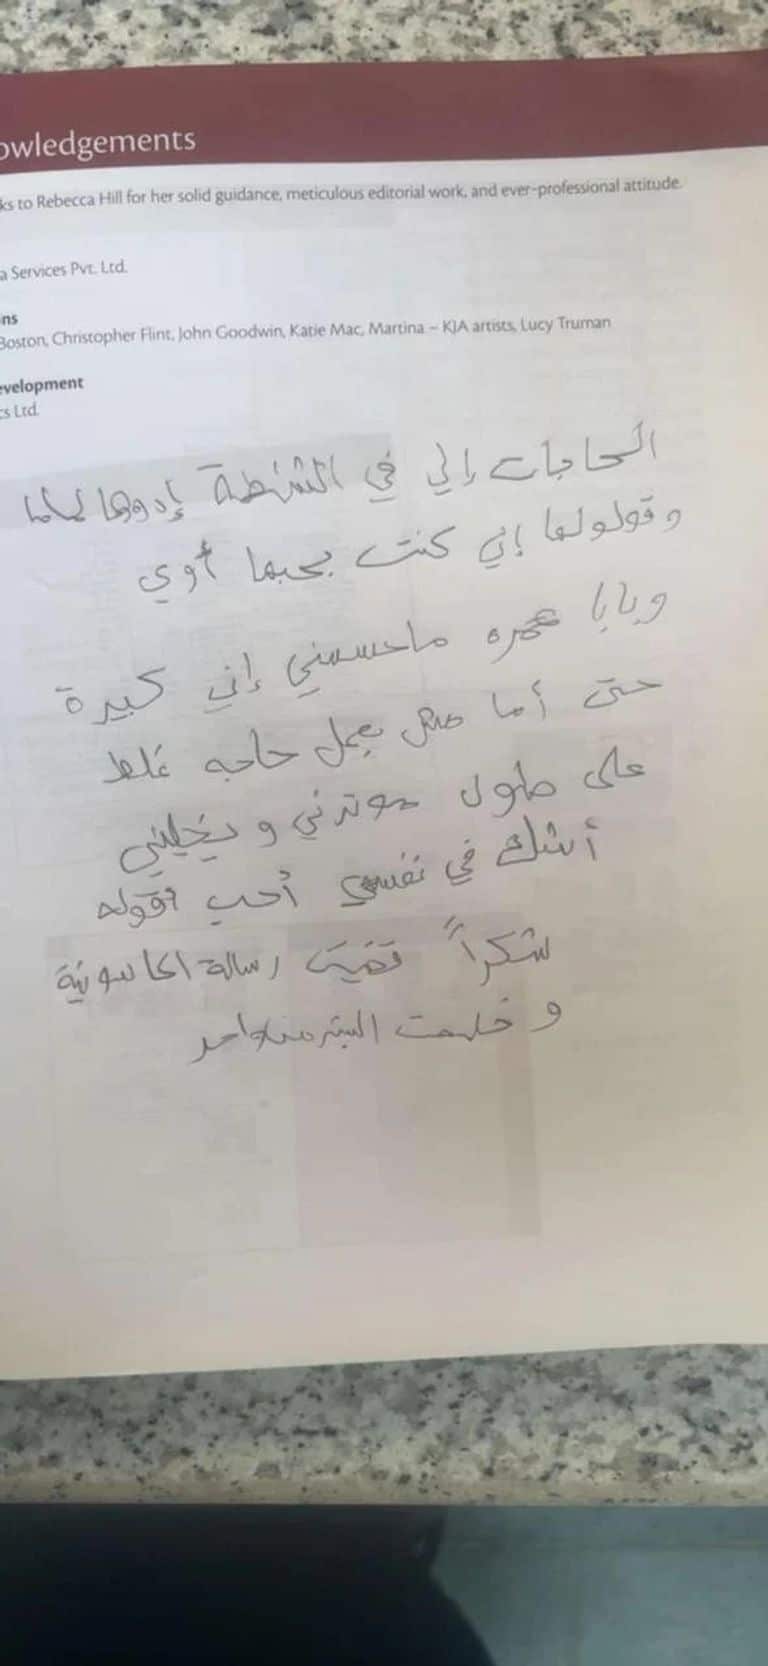 owledgements
ks to Rebecca Hill for her solid guidance, meticulous editorial work, and ever-professional attitude.
a Services Pvt. Ltd.
ns
Boston, Christopher Flint, John Goodwin, Katie Mac, Martina – KJA artists, Lucy Truman
evelopment
cs Ltd.
الحاجات إلي في الشنطة إدوها لماما
وقولولها إني كنت بحبها أوي
وبابا عمره ماحسسني إني كبيرة
حتى أما مش بعمل حاجه غلط
على طول موترني ويخليني
أشك في نفسي أحب أقوله
شكراً رسالة
و البنت واحد